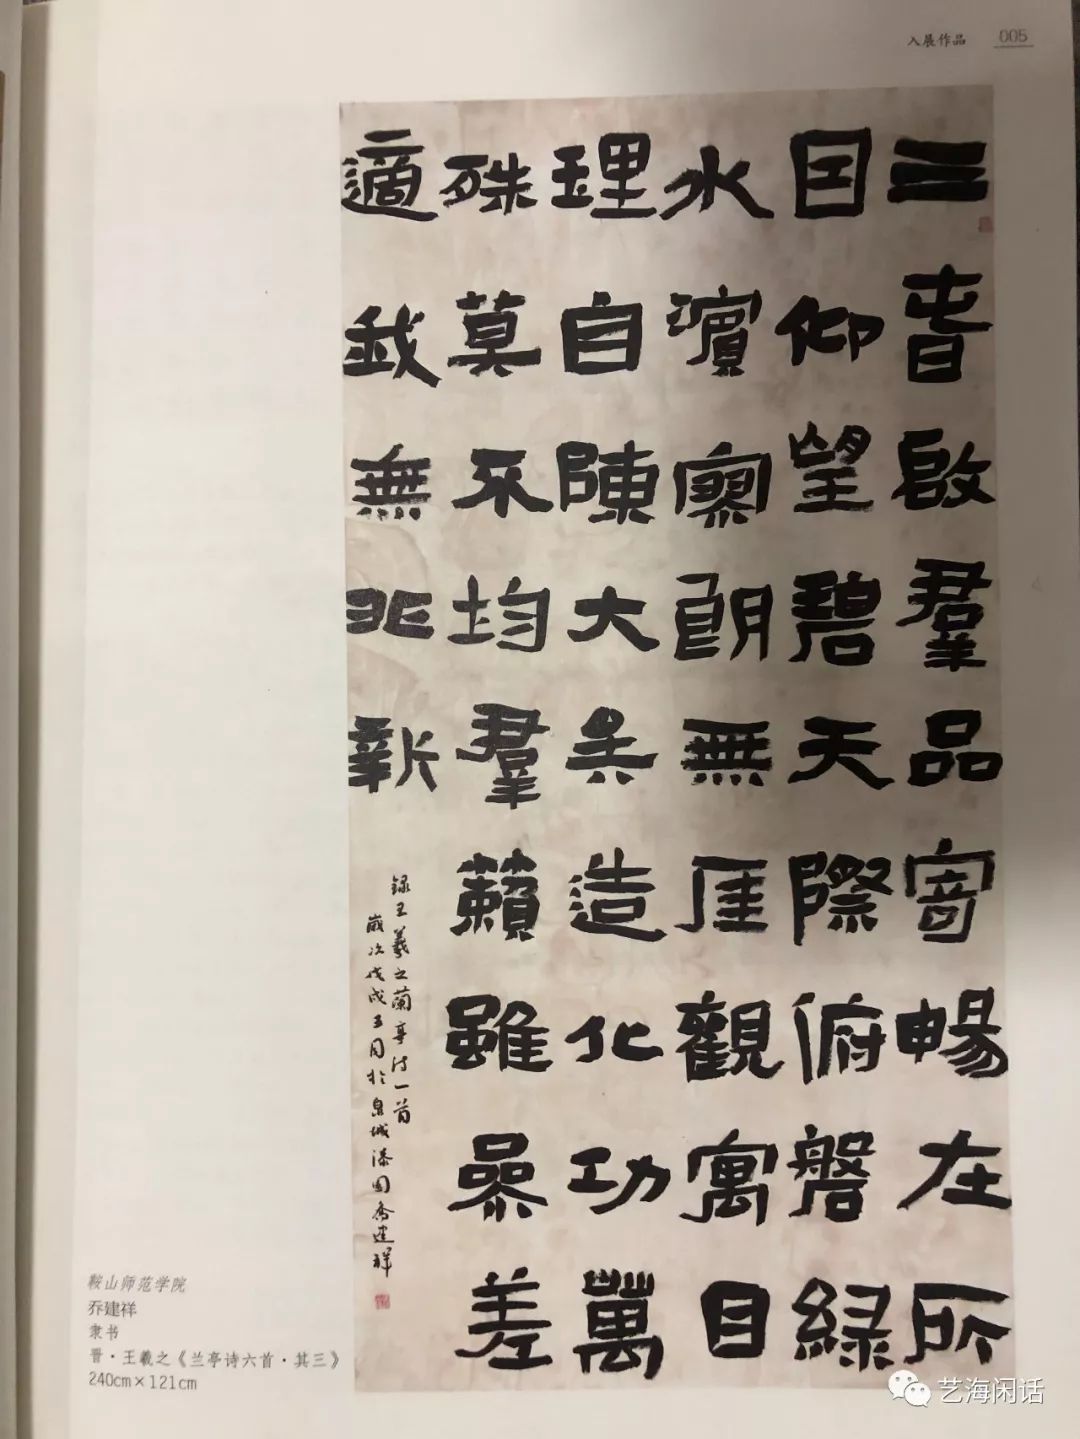 入展作品 005
三春啟羣品寄暢在所
因仰望碧天際俯磐綠
水濱寥朗無厓觀寓目
理自陳大矣造化功萬
殊莫不均羣籟雖參差
適我無非新
録王羲之蘭亭诗一首
歲次戊戌五月於泉城漆园喬建祥
鞍山师范学院
乔建祥
隶书
晋·王羲之《兰亭诗六首·其三》
240cm×121cm
艺海闲话